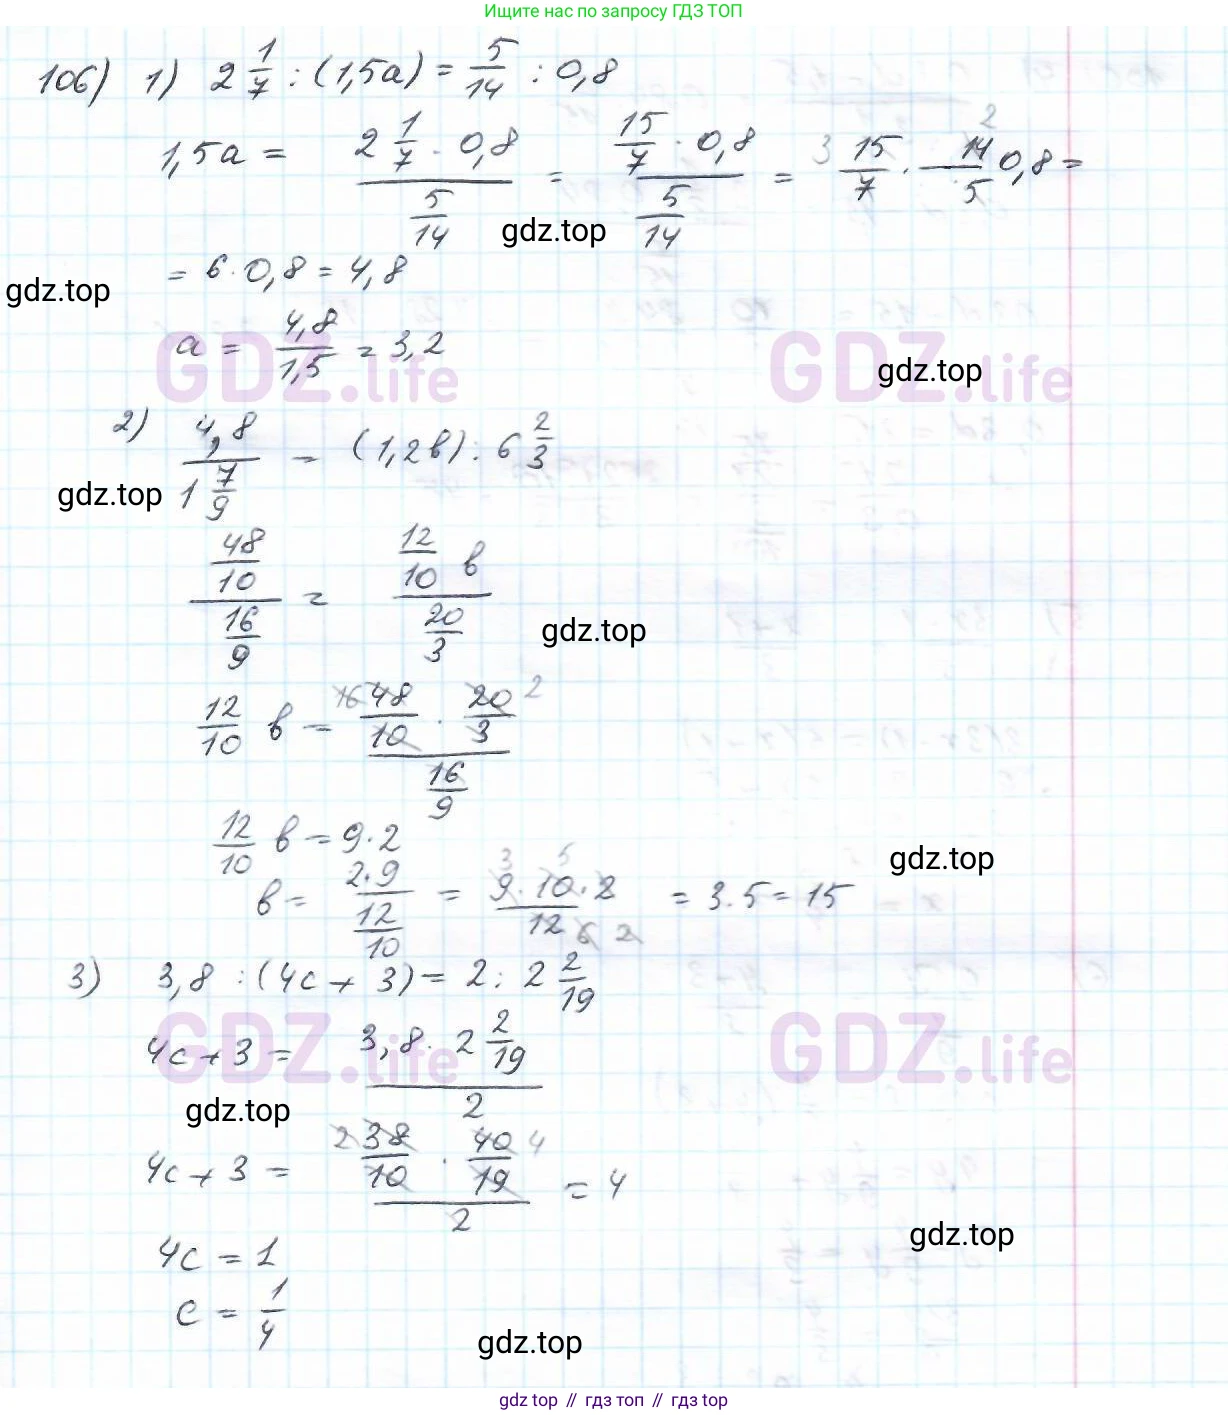 Ищите нас по запросу ГДЗ ТОП
106) 1) 2 1/7 : (1,5a) = 5/14 : 0,8
1,5a = (2 1/7 · 0,8)/(5/14) = (15/7 · 0,8)/(5/14) = 3 15/7 · 14/5 2 0,8 =
gdz.top
= 6 · 0,8 = 4,8
gdz.top
a = 4,8/1,5 = 3,2
GDZ.life GDZ.life
gdz.top
2) 4,8/(1 7/9) = (1,2в) : 6 2/3
gdz.top
(48/10)/(16/9) = (12/10 в)/(20/3)
gdz.top
12/10 в = 16 (48/10 · 20/3)/(16/9) 2
12/10 в = 9·2
gdz.top
в = (2·9)/(12/10) = (9·10·2)/12 3 5 6 2 = 3·5 = 15
3) 3,8 : (4c + 3) = 2 : 2 2/19
4c + 3 = (3,8 · 2 2/19)/2
GDZ.life GDZ.life
gdz.top
4c + 3 = 2 (38/10 · 40/19)/2 4 = 4
gdz.top
4c = 1
c = 1/4
gdz.top
gdz top // гдз топ // gdz top